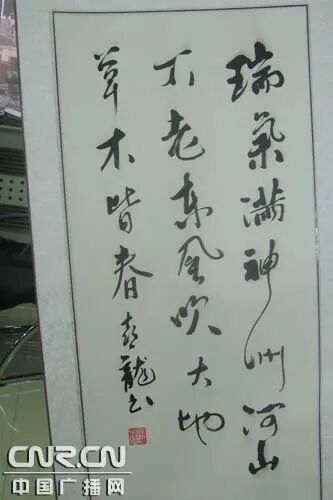 瑞氣满神州河山
不老东風吹大地
草木皆春彭龍书
CNR.CN
中国广播网